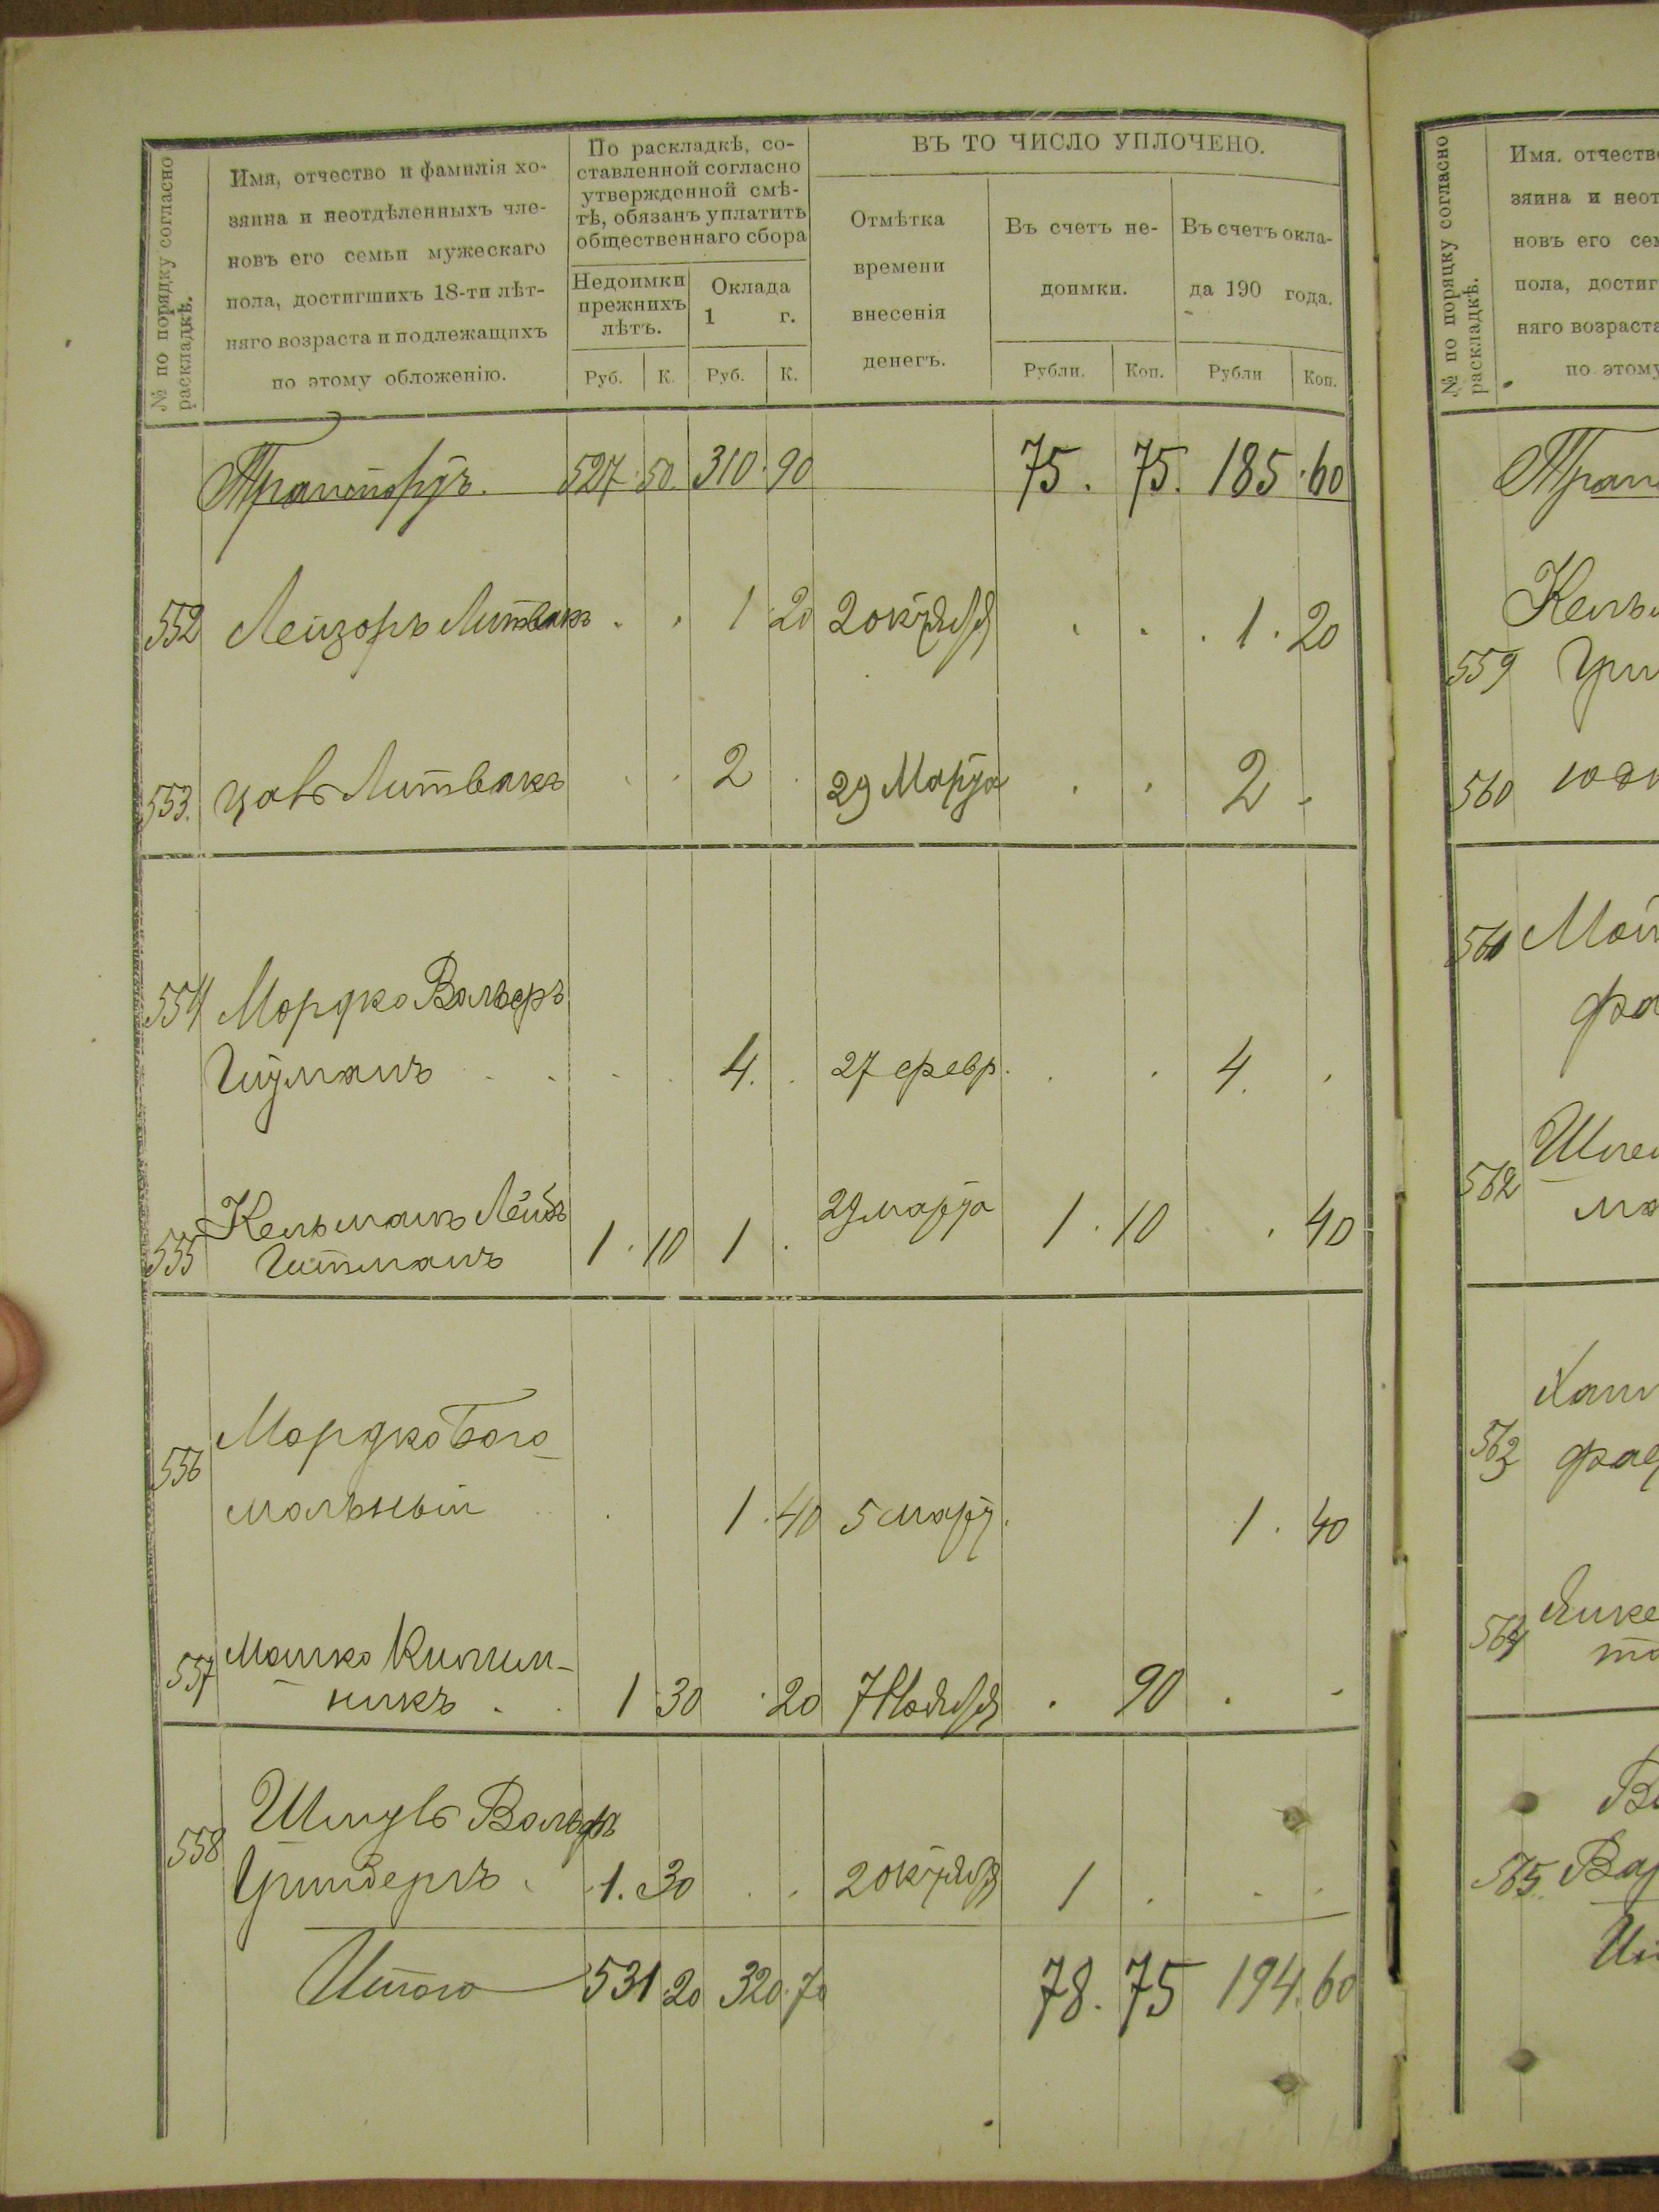 № по порядку согласно раскладкѣ.
Имя, отчество и фамилія хо-
зяина и неотдѣленныхъ чле-
новъ его семьи мужескаго
пола, достигшихъ 18-ти лѣт-
няго возраста и подлежащихъ
по этому обложенію.
По раскладкѣ, со-
ставленной согласно
утвержденной смѣ-
тѣ, обязанъ уплатить
общественнаго сбора
Недоимки
прежнихъ
лѣтъ.
Оклада
1 г.
Руб. К. Руб. К.
ВЪ ТО ЧИСЛО УПЛОЧЕНО.
Отмѣтка
времени
внесенія
денегъ.
Въ счетъ не-
доимки.
Въ счетъ окла-
да 190 года.
Рубли. Коп. Рубли Коп.
Транспортъ. 527 50 310 90 75. 75. 185 60
552 Лейзоръ Литвакъ 1 20 2 октября 1. 20
553. Литвакъ 2 29 Марта 2
554 Мордко Вольфъ
Гитманъ 4. 27 февр. 4.
555 Кельманъ Лейбъ
Гитманъ 1 10 1 29 марта 1. 10 40
556 Мордко Бого
мольный 1 40 5 март. 1. 40
557 Кипни-
никъ 1 30 20 7 Ноября 90
558 Шмуль Вольфъ
Гринбергъ 1. 30 2 октября 1
Итого 531 20 320 70 78. 75 194. 60
№ по порядку согласно раскладкѣ.
Имя, отчество
зяина и неот
новъ его сем
пола, достиг
няго возраста
по этому
Тран
Кель
559 Гри
560
561 Мой
562 Шле
563
564 Янке
565 Вар